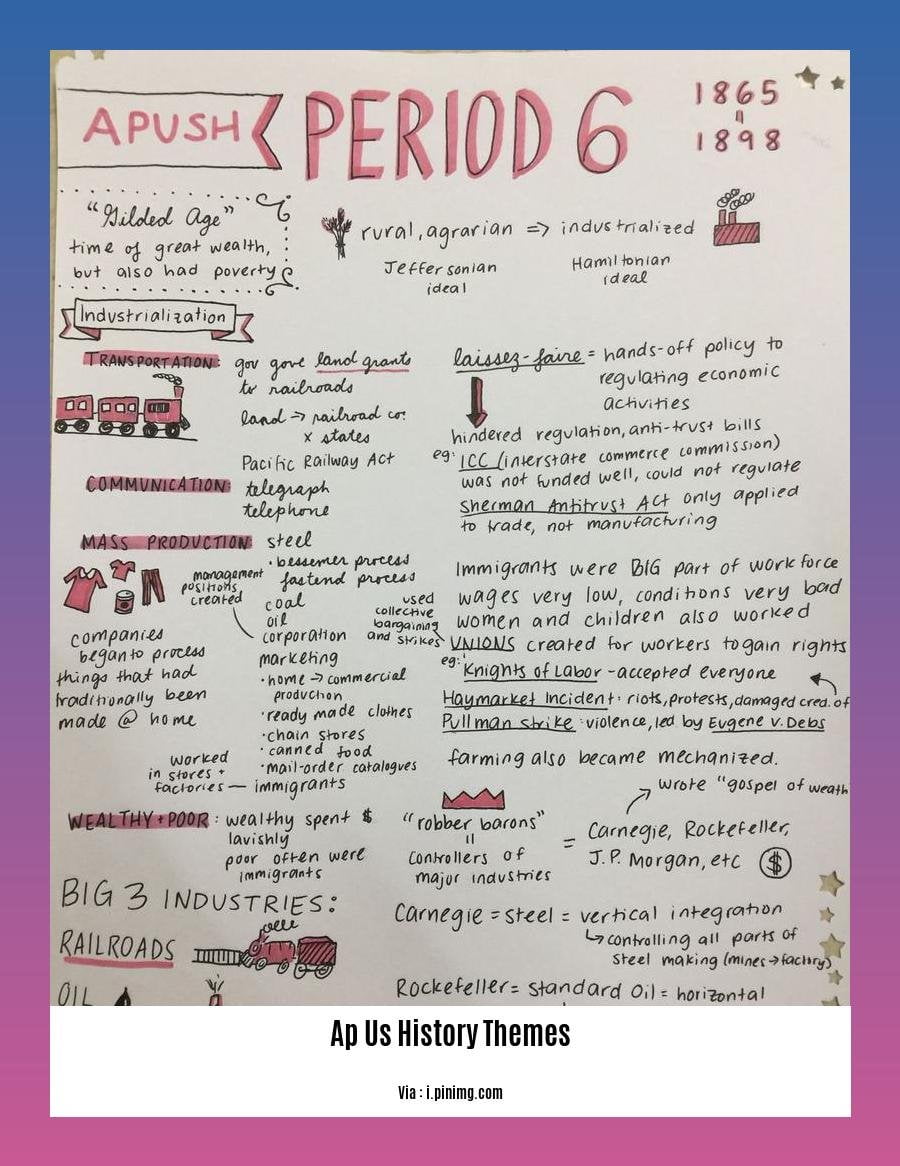 APUSH
PERIOD 6
1865
1898
"Gilded Age"
time of great wealth,
but also had poverty
rural, agrarian => industrialized
Jeffersonian
ideal
Hamiltonian
ideal
Industrialization
TRANSPORTATION: gov gove land grants
to railroads
land → railroad co.
x states
Pacific Railway Act
COMMUNICATION: telegraph
telephone
MASS PRODUCTION: steel
• bessemer process
fastend process
management
positions
created
coal
oil
corporation
marketing
• home → commercial
production
• ready made clothes
• chain stores
• canned food
• mail-order catalogues
immigrants
companies
began to process
things that had
traditionally been
made @ home
worked
in stores +
factories
WEALTHY + POOR: wealthy spent $
lavishly
poor often were
immigrants
BIG 3 INDUSTRIES:
RAILROADS
OIL
laissez-faire = hands-off policy to
regulating economic
activities
hindered regulation, anti-trust bills
eg: ICC (interstate commerce commission)
was not funded well, could not regulate
Sherman Antitrust Act only applied
to trade, not manufacturing
Immigrants were BIG part of work force
wages very low, conditions very bad
women and children also worked
used
collective
bargaining
and strikes
UNIONS created for workers to gain rights
eg: Knights of Labor - accepted everyone
Haymarket Incident: riots, protests, damaged cred. of
Pullman strike: violence, led by Eugene V. Debs
farming also became mechanized.
wrote "gospel of weath
"robber barons"
=
controllers of
major industries
= Carnegie, Rockefeller,
J.P. Morgan, etc $
Carnegie = steel = vertical integration
↳ controlling all parts of
steel making (mines → factory)
Rockefeller = Standard Oil = horizontal
Ap Us History Themes
Via : i.pinimg.com